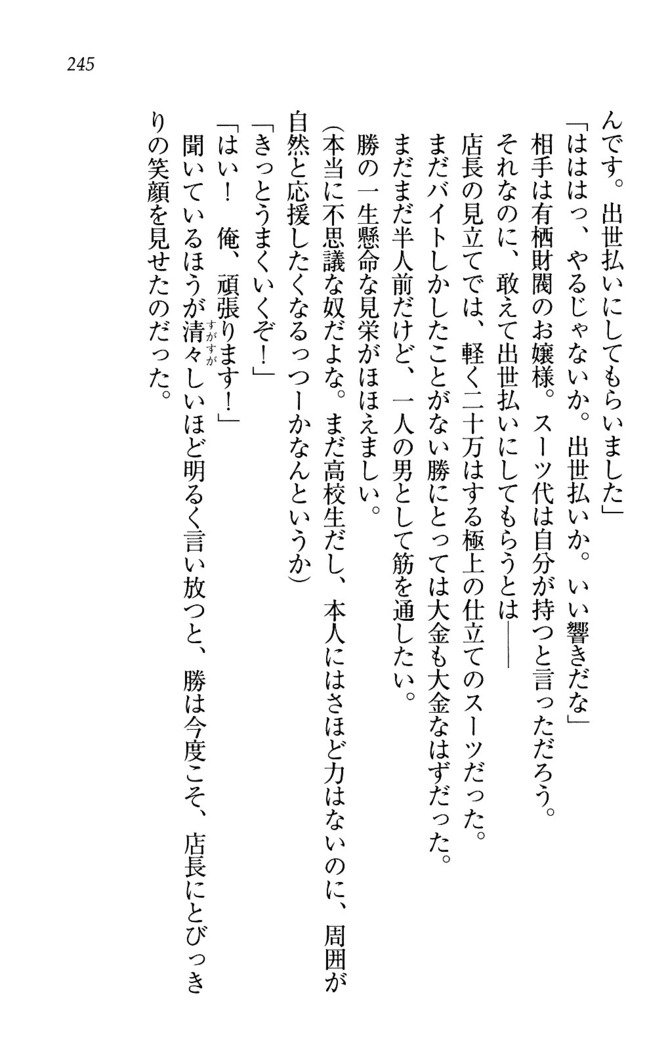 245
んです。出世払いにしてもらいました」
「はははっ、やるじゃないか。出世払いか。いい響きだな」
相手は有栖財閥のお嬢様。スーツ代は自分が持つと言っただろう。
それなのに、敢えて出世払いにしてもらうとは――
店長の見立てでは、軽く二十万はする極上の仕立てのスーツだった。
まだバイトしかしたことがない勝にとっては大金も大金なはずだった。
まだまだ半人前だけど、一人の男として筋を通したい。
勝の一生懸命な見栄がほほえましい。
(本当に不思議な奴だよな。まだ高校生だし、本人にはさほど力はないのに、周囲が
自然と応援したくなるっつーかなんというか)
「きっとうまくいくぞ！」
「はい！　俺、頑張ります！」
聞いているほうが清々しいほど明るく言い放つと、勝は今度こそ、店長にとびっき
すがすが
りの笑顔を見せたのだった。